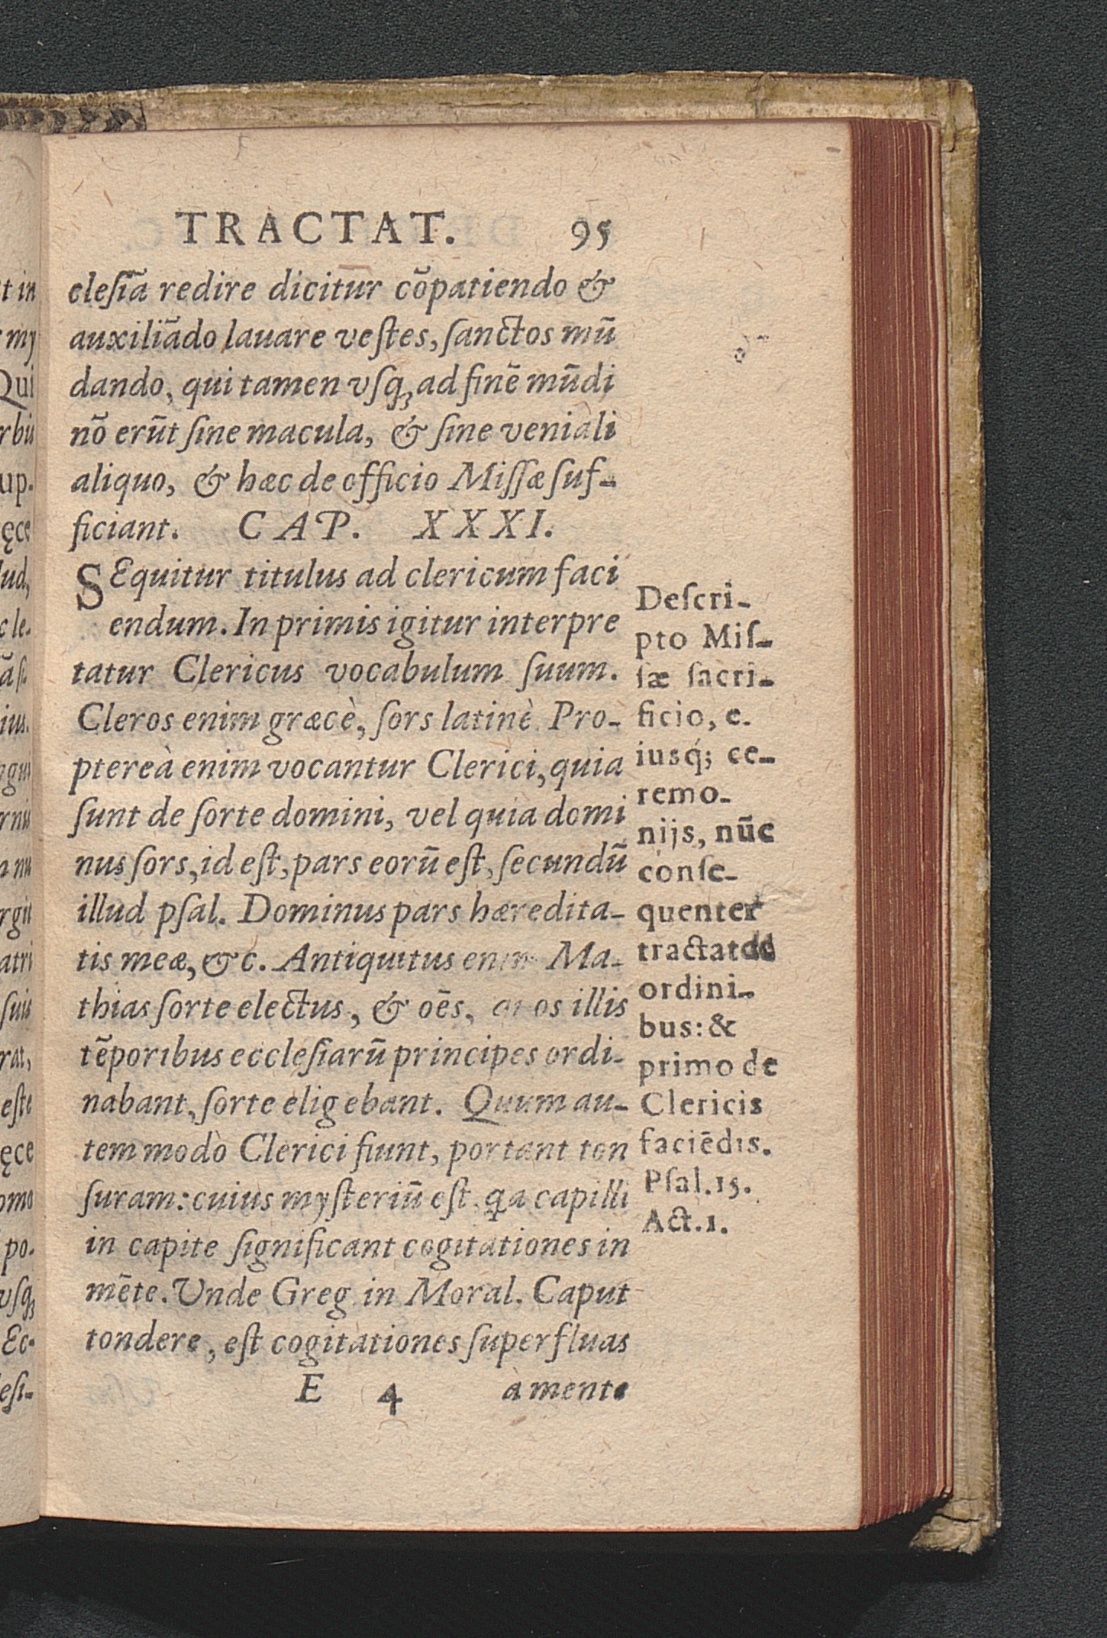 TRACTAT. 95
clesiã redire dicitur cõpatiendo &
auxiliãdo lauare vestes, sanctos mũ
dando, qui tamen vsq́; ad finẽ mũdi
nõ erũt sine macula, & sine veniali
aliquo, & hæc de officio Missæ suf-
ficiant. CAP. XXXI.
SEquitur titulus ad clericum faci
endum. In primis igitur interpre
tatur Clericus vocabulum suum.
Cleros enim græcè, sors latinè. Pro-
ptereà enim vocantur Clerici, quia
sunt de sorte domini, vel quia domi
nus sors, id est, pars eorũ est, secundũ
illud psal. Dominus pars hæredita-
tis meæ, &c. Antiquitus enim Ma-
thias sorte electus, & oẽs, os illis
tẽporibus ecclesiarũ principes ordi-
nabant, sorte eligebant. Quum au-
tem modò Clerici fiunt, portant ton
suram: cuius mysteriũ est. qa capilli
in capite significant cogitationes in
mẽte. Unde Greg. in Moral. Caput
tondere, est cogitationes superfluas
E 4 à mente
Descri-
pto Mis-
sæ sacri-
ficio, e-
iusq́; ce-
remo-
nijs, nũc
conse-
quenter
tractat de
ordini-
bus: &
primo de
Clericis
faciẽdis.
Psal. 15.
Act. 1.